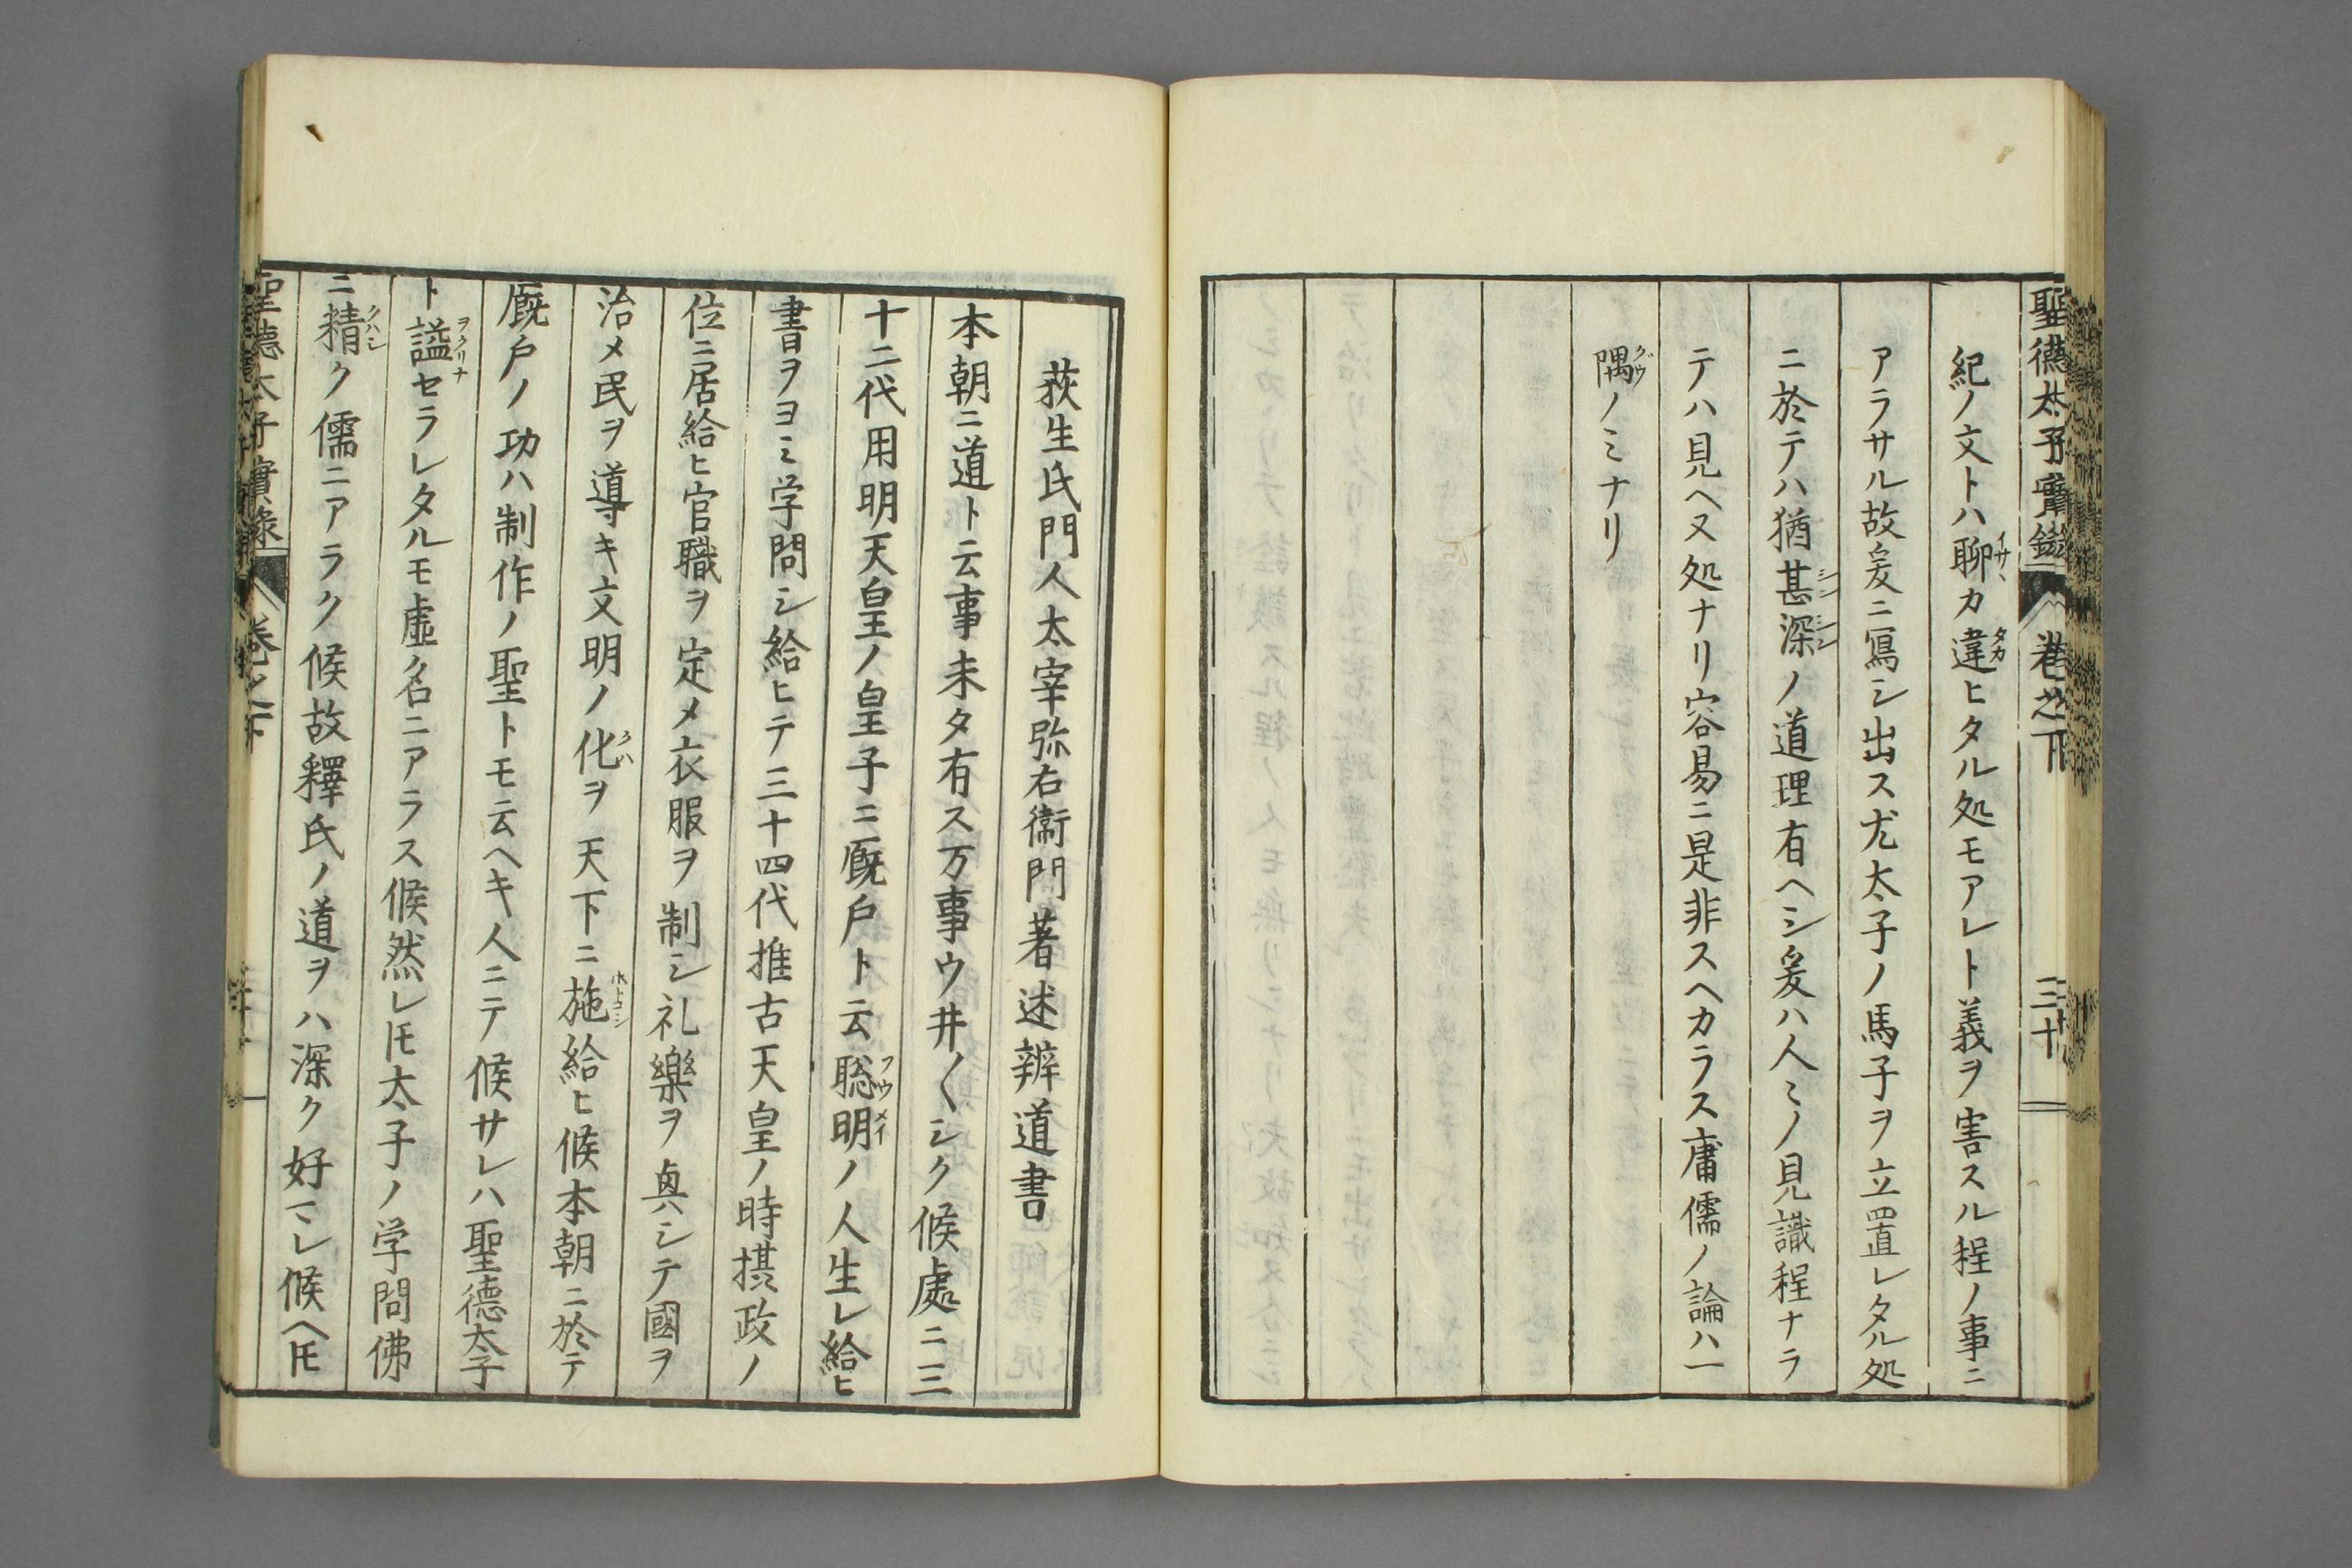 聖德太子實錄 卷之下 三十
紀ノ文トハ聊カ違ヒタル処モアレト義ヲ害スル程ノ事ニ
アラサル故爰ニ寫シ出ス尤太子ノ馬子ヲ立置レタル処
ニ於テハ猶甚深ノ道理有ヘシ爰ハ人々ノ見識程ナラ
テハ見ヘヌ処ナリ容易ニ是非スヘカラス庸儒ノ論ハ一
隅ノミナリ
荻生氏門人太宰弥右衞門著述辨道書
本朝ニ道ト云事未タ有ス万事ウ井〱シク候處ニ三
十二代用明天皇ノ皇子ニ厩戸ト云聡明ノ人生レ給ヒ
書ヲヨミ学問シ給ヒテ三十四代推古天皇ノ時摂政ノ
位ニ居給ヒ官職ヲ定メ衣服ヲ制シ礼樂ヲ典シテ國ヲ
治メ民ヲ導キ文明ノ化ヲ天下ニ施給ヒ候本朝ニ於テ
厩戸ノ功ハ制作ノ聖トモ云ヘキ人ニテ候サレハ聖德太子
ト謚セラレタルモ虚名ニアラス候然レ𪜈太子ノ学問佛
ニ精ク儒ニアラク候故釋氏ノ道ヲハ深ク好マレ候ヘ𪜈
聖德太子實錄 卷之下